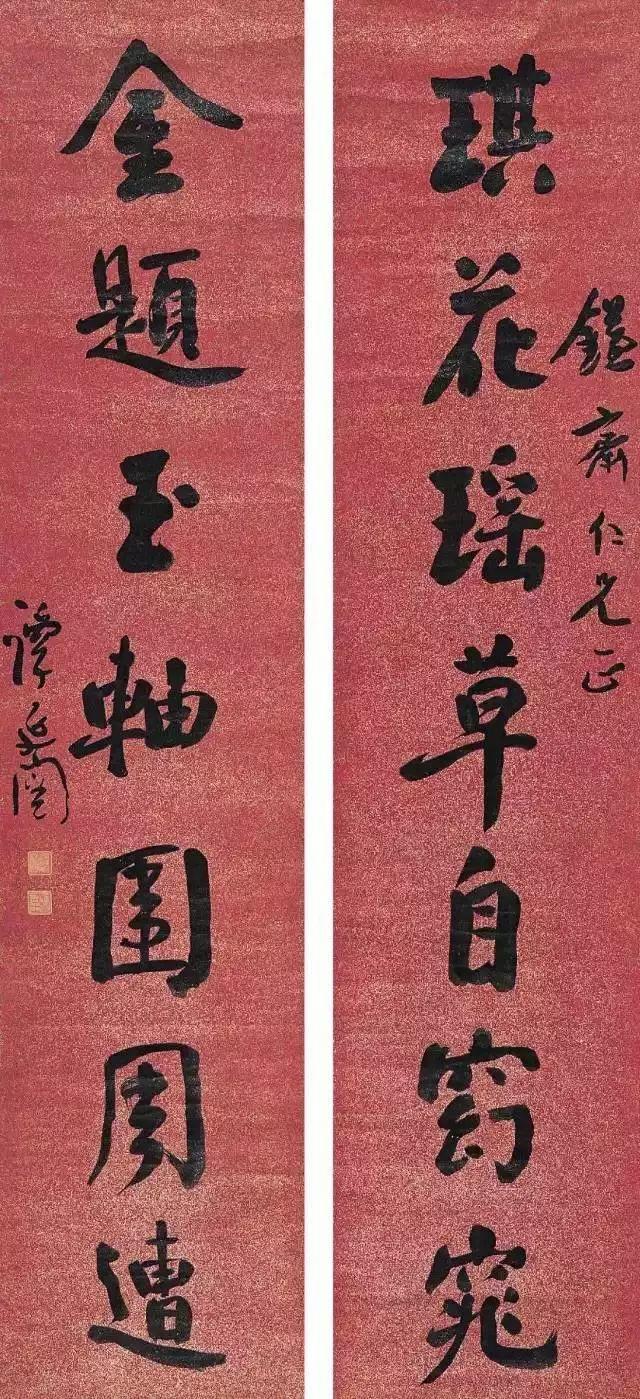 琪花瑶草自窈窕
鑑斋仁兄正
金題玉軸圍周遭
譚延闓